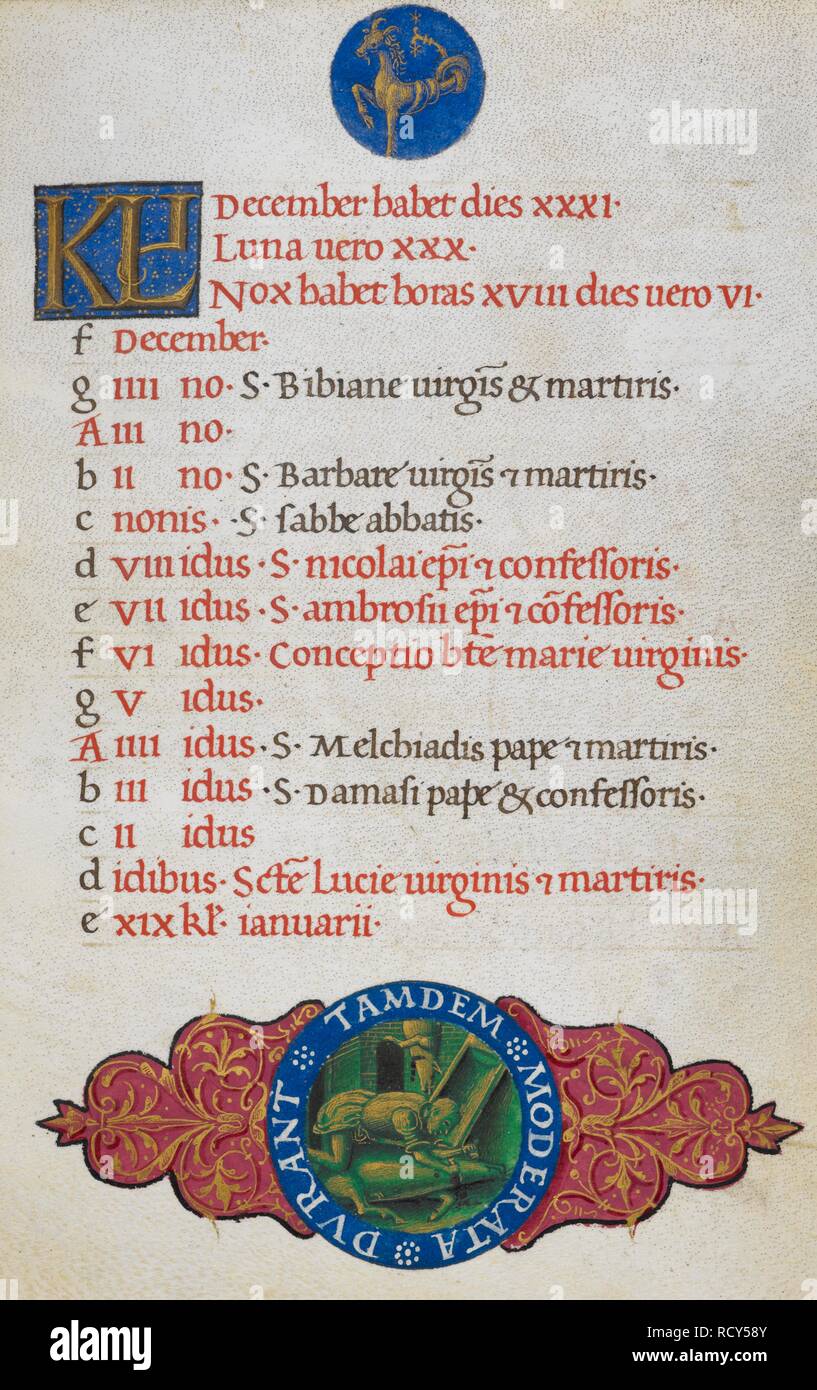 KL
December habet dies xxxi·
Luna uero xxx·
Nox habet horas xviii dies uero vi·
f December·
g iiii no· S· Bibiane uirgīs & martiris·
A iii no·
b ii no· S· Barbare uirgīs ⁊ martiris·
c nonis· ·S· ſabbe abbatis·
d viii idus · S· nicolai ep̄i ⁊ confeſſoris·
e vii idus · S· ambroſii ep̄i ⁊ cōfeſſoris·
f vi idus· Conceptio bt̄e marie uirginis·
g v idus·
A iiii idus · S· Melchiadis pape ⁊ martiris·
b iii idus · S· Damaſi pape & confeſſoris·
c ii idus
d idibus· Sct̄e Lucie uirginis ⁊ martiris·
e xix kl̄· ianuarii·
TAMDEM MODERATA DVRANT
alamy
alamy
alamy
a
a
a
alamy
Image ID: RCY58Y
www.alamy.com